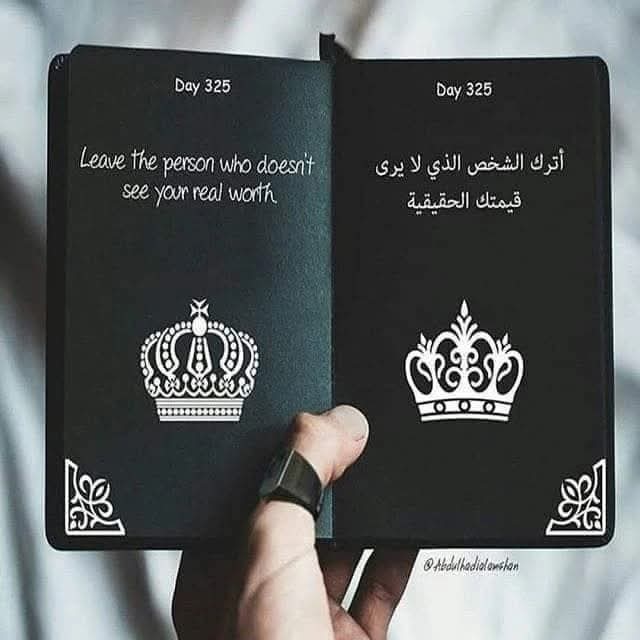 Day 325
Leave the person who doesn't
see your real worth
Day 325
أترك الشخص الذي لا يرى
قيمتك الحقيقية
@Abdulhadialamshan